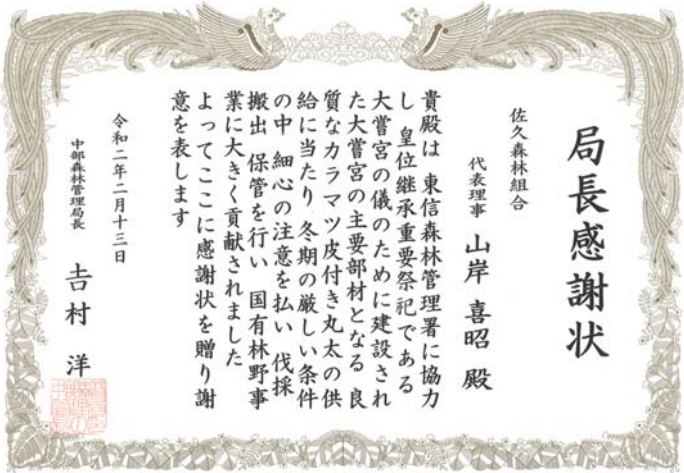 局長感謝状
佐久森林組合
代表理事 山岸 喜昭 殿
貴殿は 東信森林管理署に協力
し 皇位継承重要祭祀である
大嘗宮の儀のために建設され
た大嘗宮の主要部材となる 良
質なカラマツ皮付き丸太の供
給に当たり 冬期の厳しい条件
の中 細心の注意を払い 伐採
搬出 保管を行い 国有林野事
業に大きく貢献されました
よってここに感謝状を贈り謝
意を表します
令和二年二月十三日
中部森林管理局長 𠮷村 洋